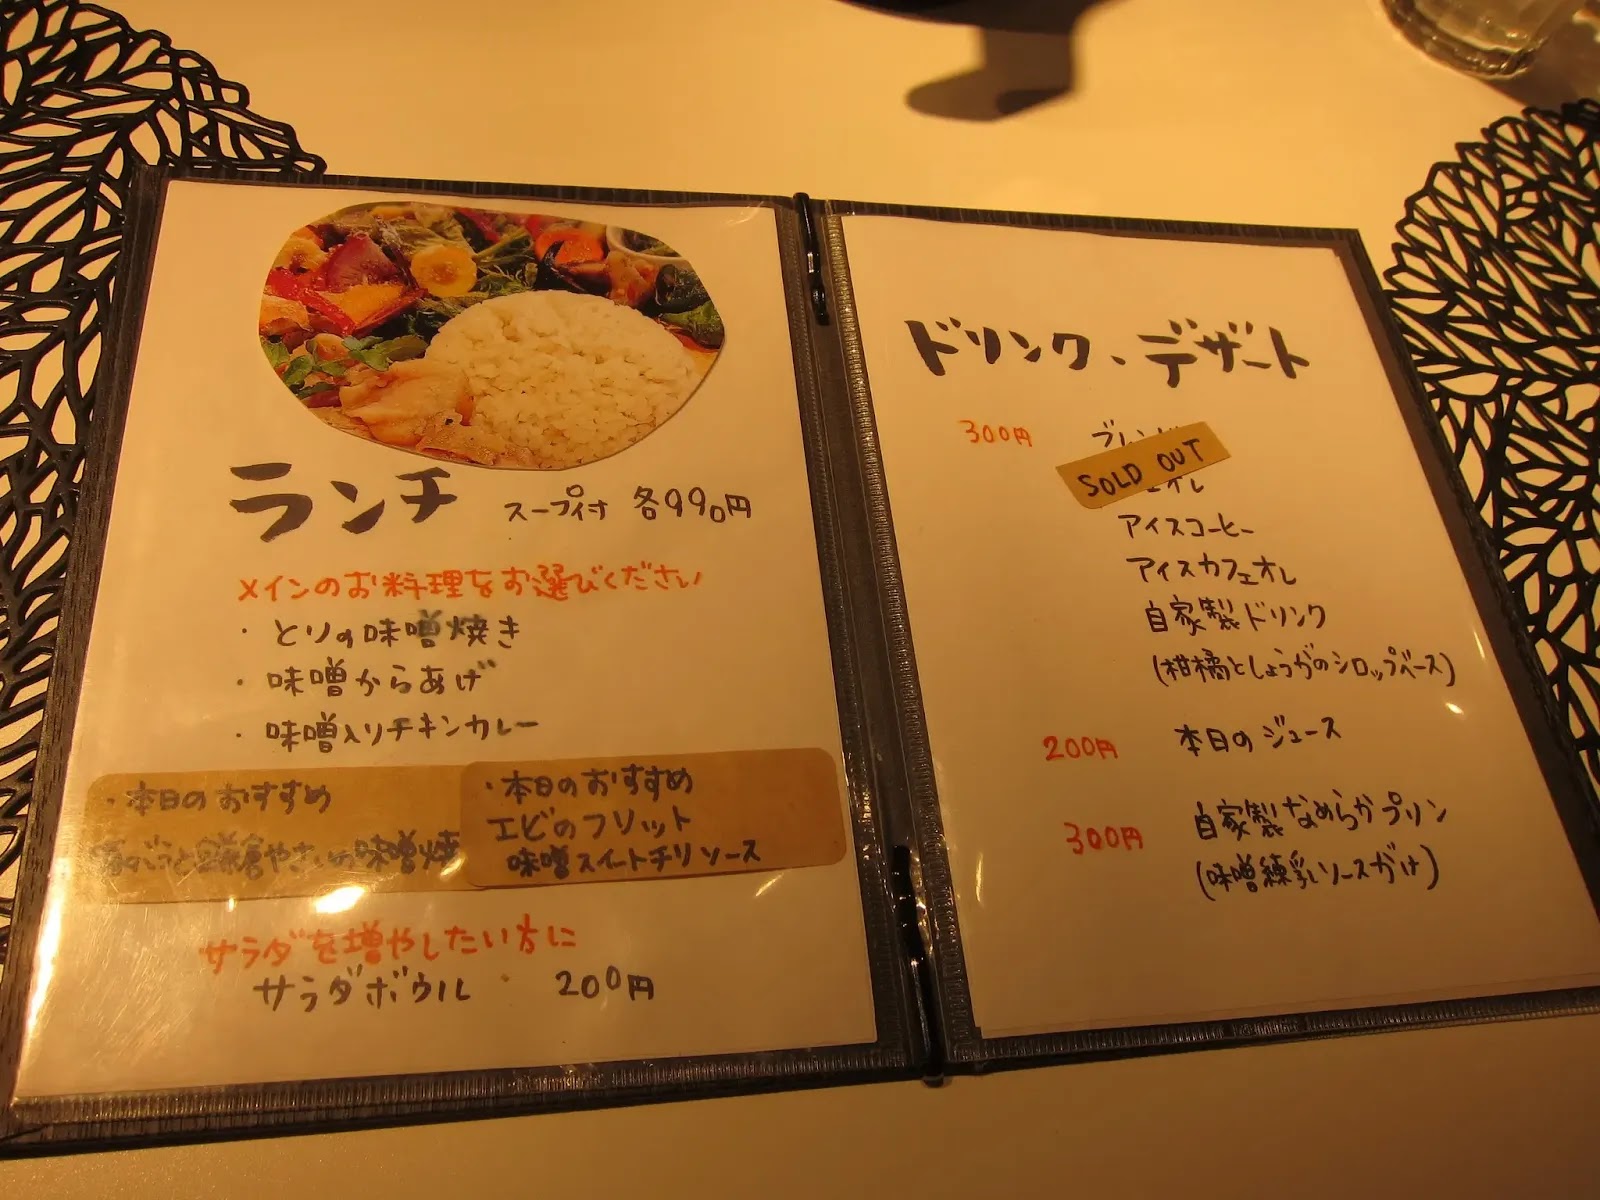 ランチ スープ付 各990円
メインのお料理をお選びください
・とりの味噌焼き
・味噌からあげ
・味噌入りチキンカレー
・本日のおすすめ
鎌倉やさいの味噌焼
・本日のおすすめ
エビのフリット
味噌スイートチリソース
サラダを増やしたい方に
サラダボウル 200円
ドリンク、デザート
300円
SOLD OUT
アイスコーヒー
アイスカフェオレ
自家製ドリンク
(柑橘としょうがのシロップベース)
200円 本日のジュース
300円 自家製なめらかプリン
(味噌練乳ソースがけ)